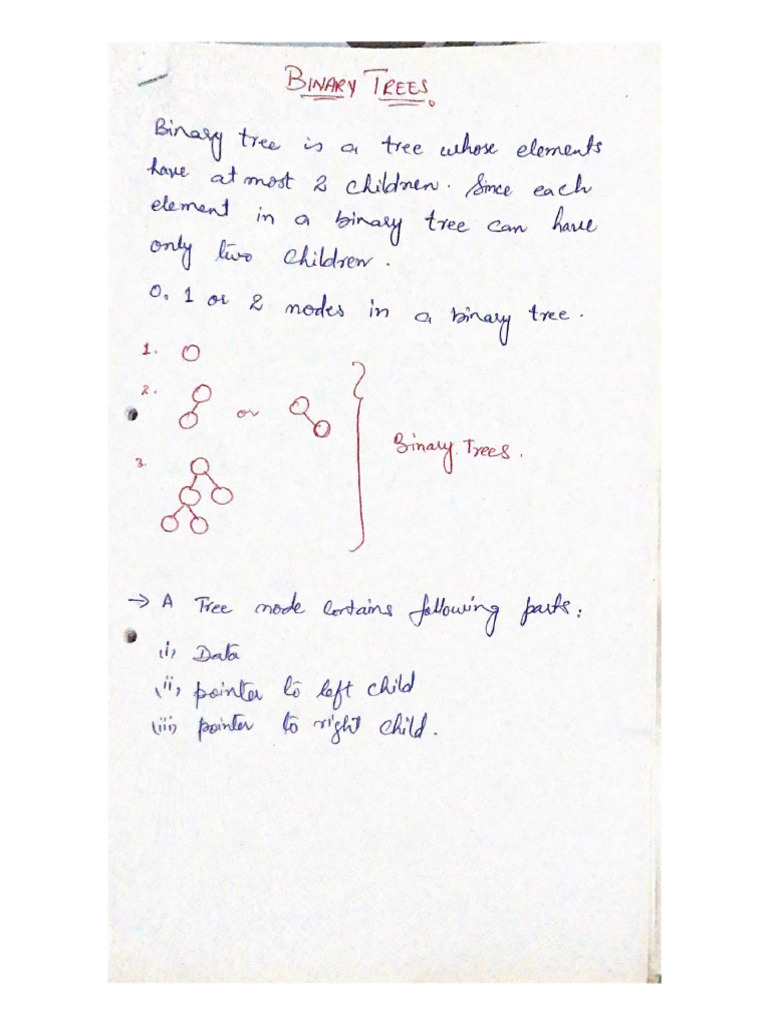 BINARY TREES.
Binary tree is a tree whose elements
have at most 2 children. Since each
element in a binary tree can have
only two children.
0, 1 or 2 nodes in a binary tree.
1.
2. or
Binary Trees.
3.
→ A Tree node contains following parts:
(i) Data
(ii) pointer to left child
(iii) pointer to right child.